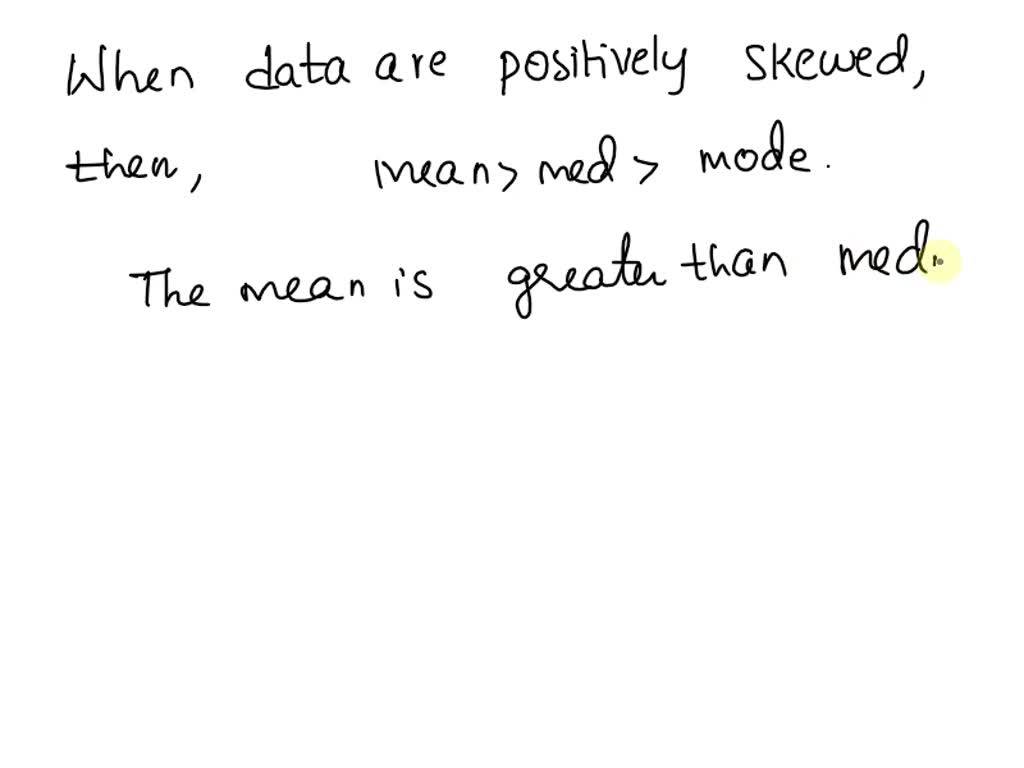 When data are positively skewed,
then, mean > med > mode.
The mean is greater than med.